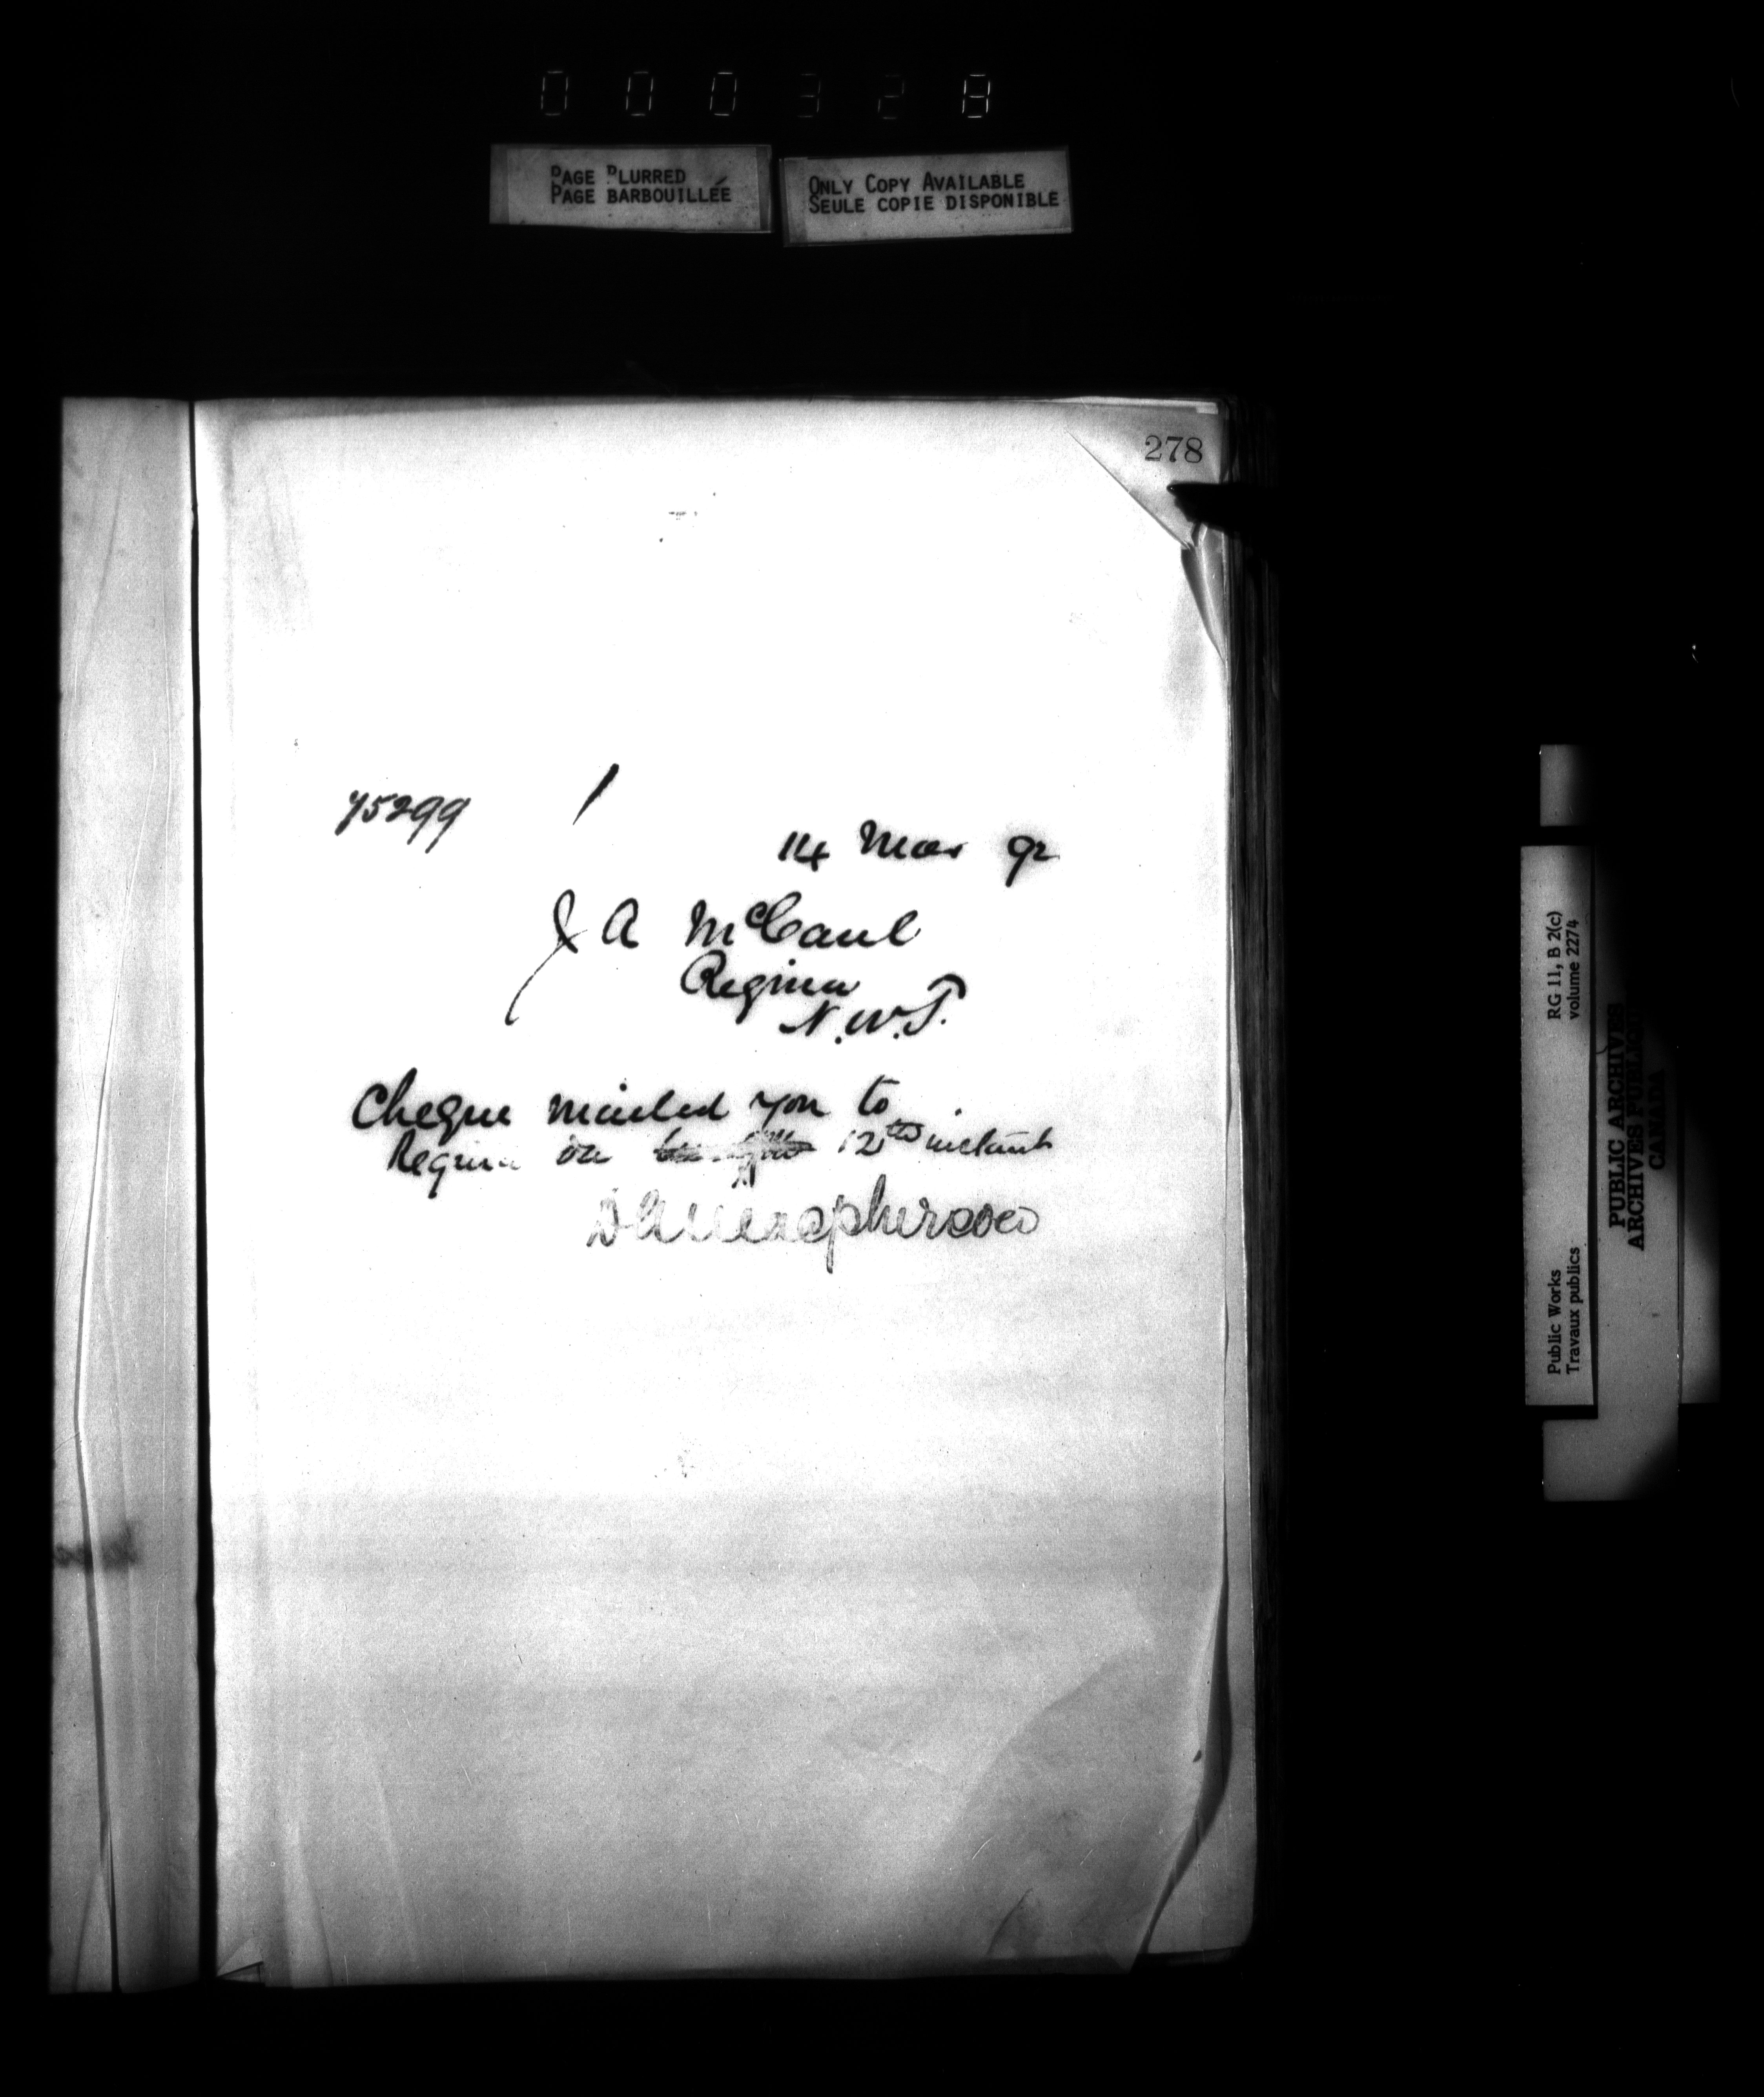 000328
PAGE BLURRED
PAGE BARBOUILLÉE
ONLY COPY AVAILABLE
SEULE COPIE DISPONIBLE
278
75299
14 Mar 92
J A McCaul
Regina
N.W.T.
Cheque mailed you to
Regina on 12th instant
Public Works
Travaux publics
RG 11, B 2(c)
volume 2274
PUBLIC ARCHIVES
ARCHIVES PUBLIQUES
CANADA